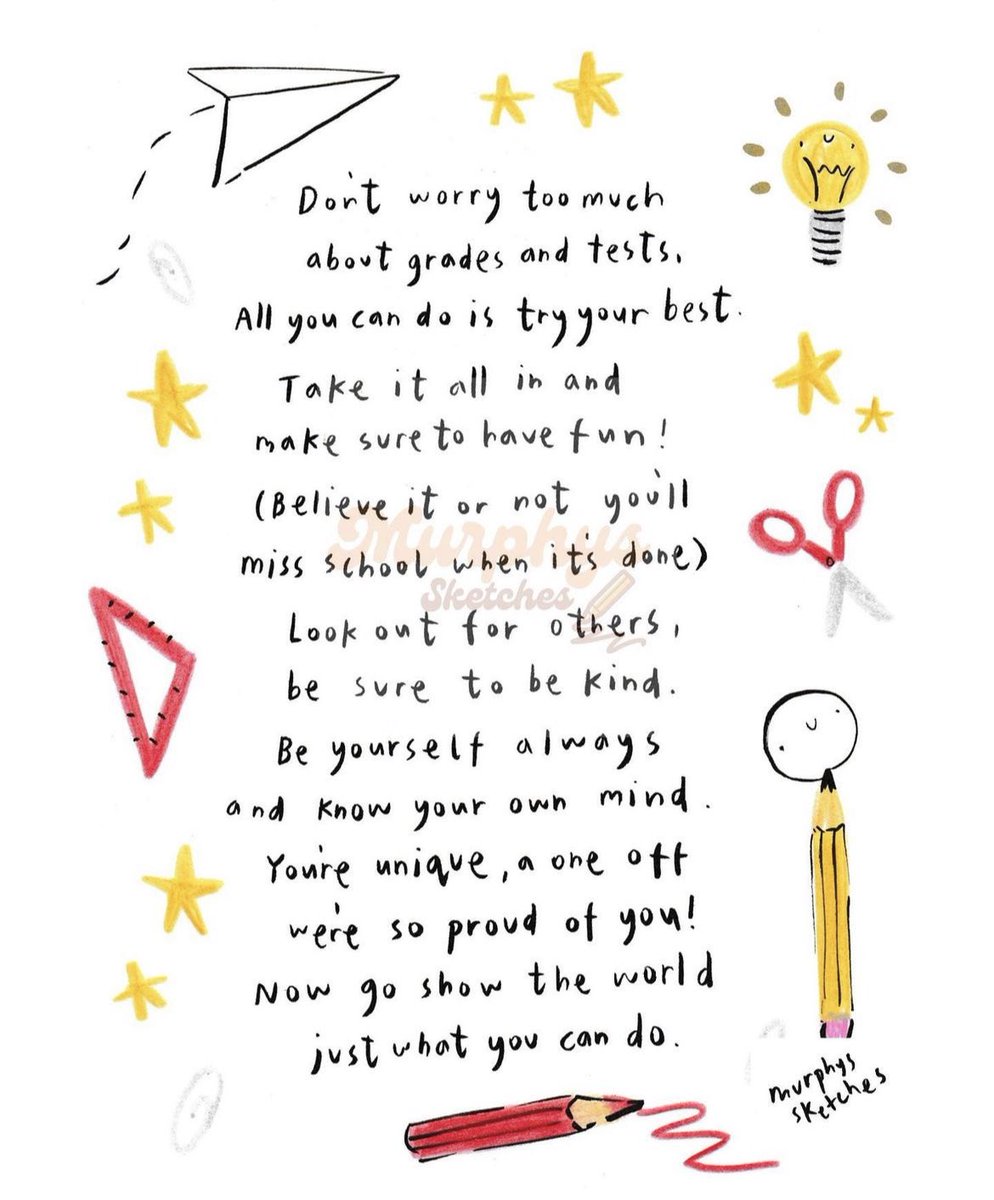 Don't worry too much
about grades and tests.
All you can do is try your best.
Take it all in and
make sure to have fun!
(Believe it or not you'll
miss school when it's done)
Murphys
Sketches
Look out for others,
be sure to be kind.
Be yourself always
and know your own mind.
You're unique, a one off
we're so proud of you!
Now go show the world
just what you can do.
murphys
sketches